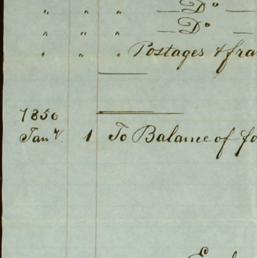 " " " — Do —
" " " — Do —
" " " Postages & fra
1850
Jany. 1 To Balance of fo